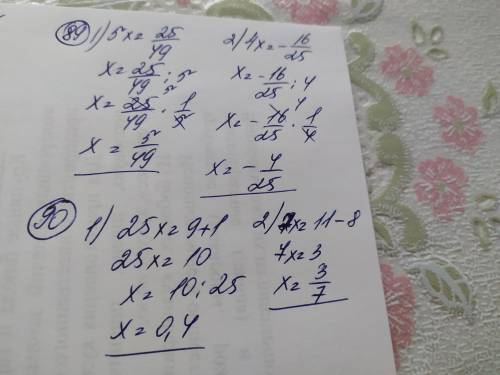 89 1) 5x = 25/49
x = 25/49 : 5
x = 25/49 · 1/5
x = 5/49
2) 4x = -16/25
x = -16/25 : 4
x = -16/25 · 1/4
x = -4/25
90 1) 25x = 9+1
25x = 10
x = 10 : 25
x = 0,4
2) 7x = 11-8
7x = 3
x = 3/7